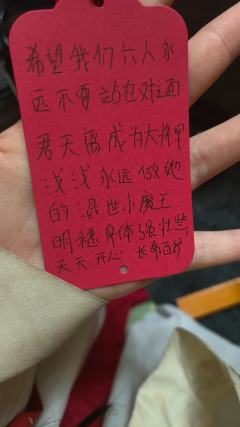 希望我们六人永
远不会站在对面
君天离成为大将军
浅浅永远做她
的混世小魔王
明穗身体强壮些,
天天开心 长命百岁